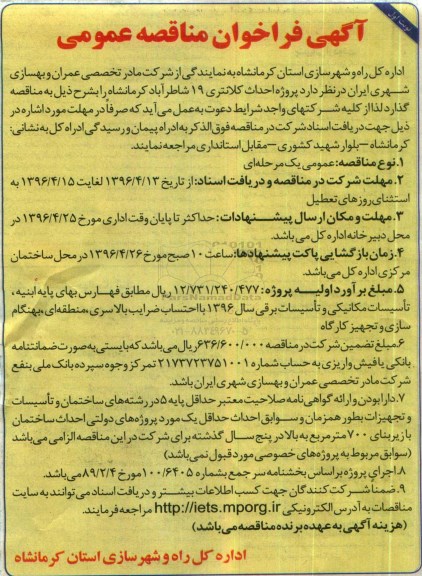 نوبت اول
آگهی فراخوان مناقصه عمومی
اداره کل راه و شهرسازی استان کرمانشاه به نمایندگی از شرکت مادر تخصصی عمران و بهسازی
شهری ایران در نظر دارد پروژه احداث کلانتری ۱۹ شاطرآباد کرمانشاه را بشرح ذیل به مناقصه
گذارد لذا از کلیه شرکتهای واجد شرایط دعوت به عمل می آید که صرفاً در مهلت مورد اشاره در
ذیل جهت دریافت اسناد شرکت در مناقصه فوق الذکر به اداره پیمان و رسیدگی اداره کل به نشانی:
کرمانشاه – بلوار شهید کشوری – مقابل استانداری مراجعه نمایند.
۱. نوع مناقصه: عمومی یک مرحله ای
۲. مهلت شرکت در مناقصه و دریافت اسناد: از تاریخ ۱۳۹۶/۴/۱۳ لغایت ۱۳۹۶/۴/۱۵ به
استثنای روزهای تعطیل
۳. مهلت و مکان ارسال پیشنهادات: حداکثر تا پایان وقت اداری مورخ ۱۳۹۶/۴/۲۵ در
محل دبیرخانه اداره کل می باشد.
۴. زمان بازگشایی پاکت پیشنهادها: ساعت ۱۰ صبح مورخ ۱۳۹۶/۴/۲۶ در محل ساختمان
مرکزی اداره کل می باشد.
۵. مبلغ برآورد اولیه پروژه: ۱۲/۷۳۱/۲۴۰/۴۷۷ ریال مطابق فهارس بهای پایه ابنیه،
تأسیسات مکانیکی و تأسیسات برقی سال ۱۳۹۶ با احتساب ضرایب بالاسری، منطقه ای، بهنگام
سازی و تجهیز کارگاه
۶. مبلغ تضمین شرکت در مناقصه ۶۳۶/۶۰۰/۰۰۰ ریال می باشد که بایستی به صورت ضمانتنامه
بانکی یا فیش واریزی به حساب شماره ۲۱۷۳۷۲۳۷۵۱۰۰۱ تمرکز وجوه سپرده بانک ملی بنفع
شرکت مادر تخصصی عمران و بهسازی شهری ایران باشد.
۷. دارا بودن و ارائه گواهی نامه صلاحیت معتبر حداقل پایه ۵ در رشته های ساختمان و تأسیسات
و تجهیزات بطور همزمان و سوابق احداث حداقل یک مورد پروژه های دولتی احداث ساختمان
با زیربنای ۷۰۰ متر مربع به بالا در پنج سال گذشته برای شرکت در این مناقصه الزامی می باشد
(سوابق مربوط به پروژه های خصوصی مورد قبول نمی باشد)
۸. اجرای پروژه بر اساس بخشنامه سر جمع بشماره ۱۰۰/۶۴۰۵ مورخ ۸۹/۲/۴ می باشد.
۹. ضمناً شرکت کنندگان جهت کسب اطلاعات بیشتر و دریافت اسناد می توانند به سایت
مناقصات به آدرس الکترونیکی http://iets.mporg.ir مراجعه فرمایند.
(هزینه آگهی به عهده برنده مناقصه می باشد)
اداره کل راه و شهرسازی استان کرمانشاه